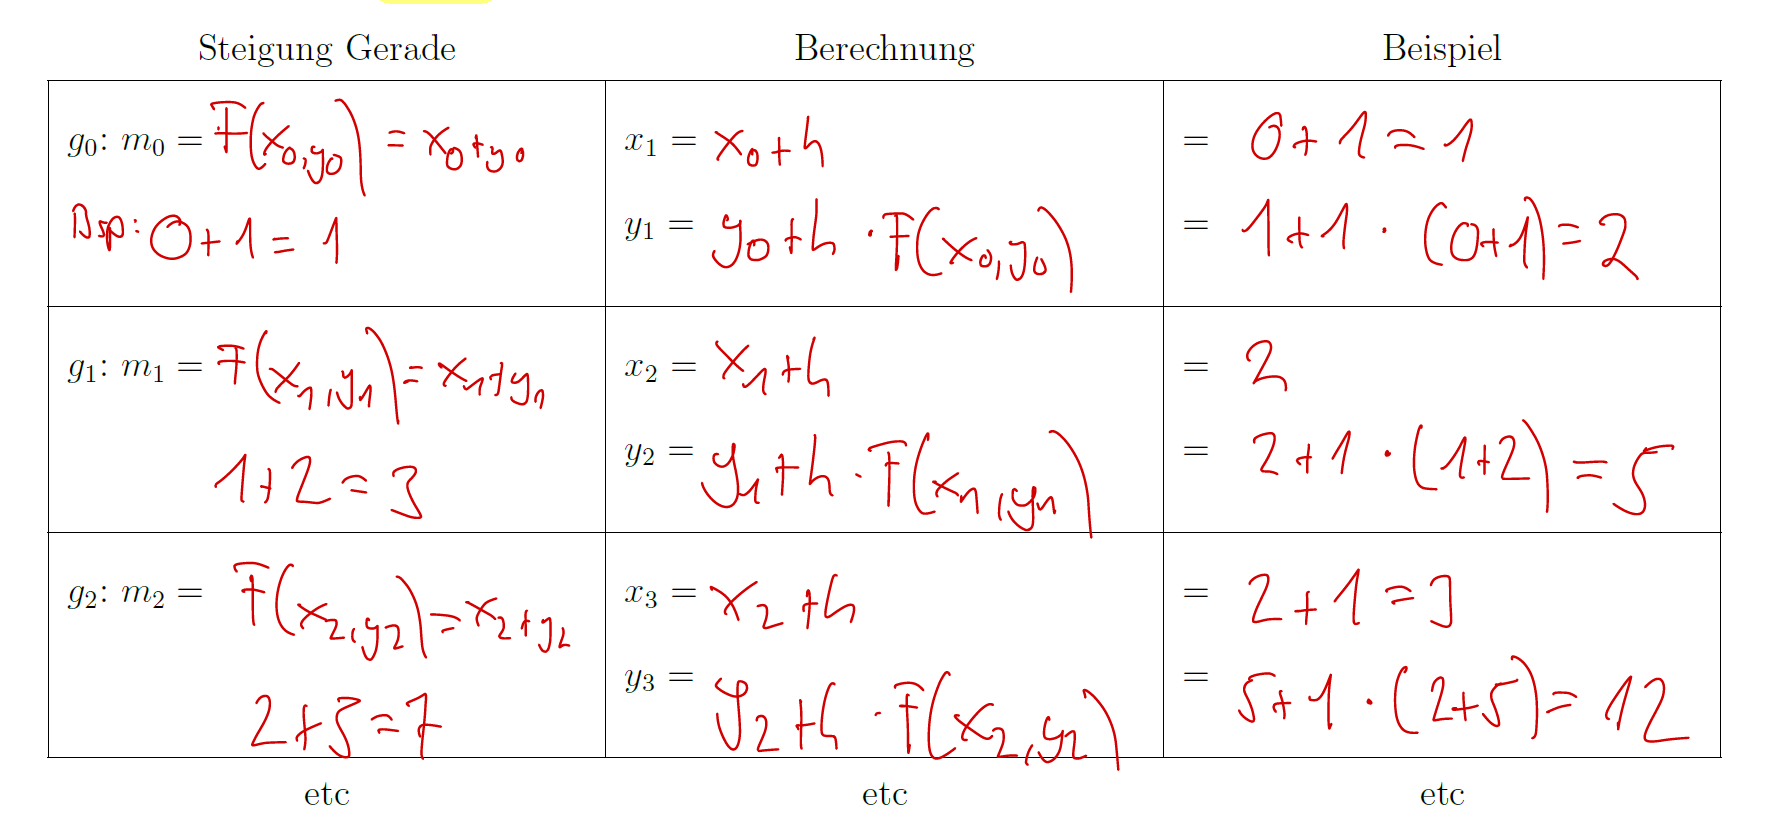 Steigung Gerade Berechnung Beispiel
g₀: m₀ = F(x₀,y₀) = x₀+y₀
Bsp: 0+1=1
x₁ = x₀+h
y₁ = y₀+h·F(x₀,y₀)
= 0+1=1
= 1+1·(0+1)=2
g₁: m₁ = F(x₁,y₁)=x₁+y₁
1+2=3
x₂ = x₁+h
y₂ = y₁+h·F(x₁,y₁)
= 2
= 2+1·(1+2)=5
g₂: m₂ = F(x₂,y₂)=x₂+y₂
2+5=7
x₃ = x₂+h
y₃ = y₂+h·F(x₂,y₂)
= 2+1=3
= 5+1·(2+5)=12
etc etc etc